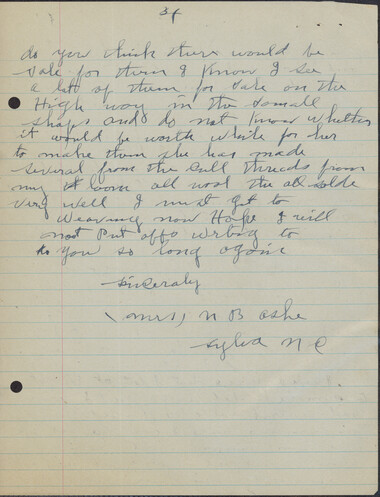 3/
do you think there would be
sale for them I Know I see
a lot of them for sale on the
High way in the small
shops and do not Know whether
it would be worth while for her
to make them she has made
several from the Cull threads from
my loom all wool the all solde
very well I must get to
Weaving now Hope I will
not Put offs writing to
you so long again
Sincerely
(Mrs) N B Ashe
Sylva N C